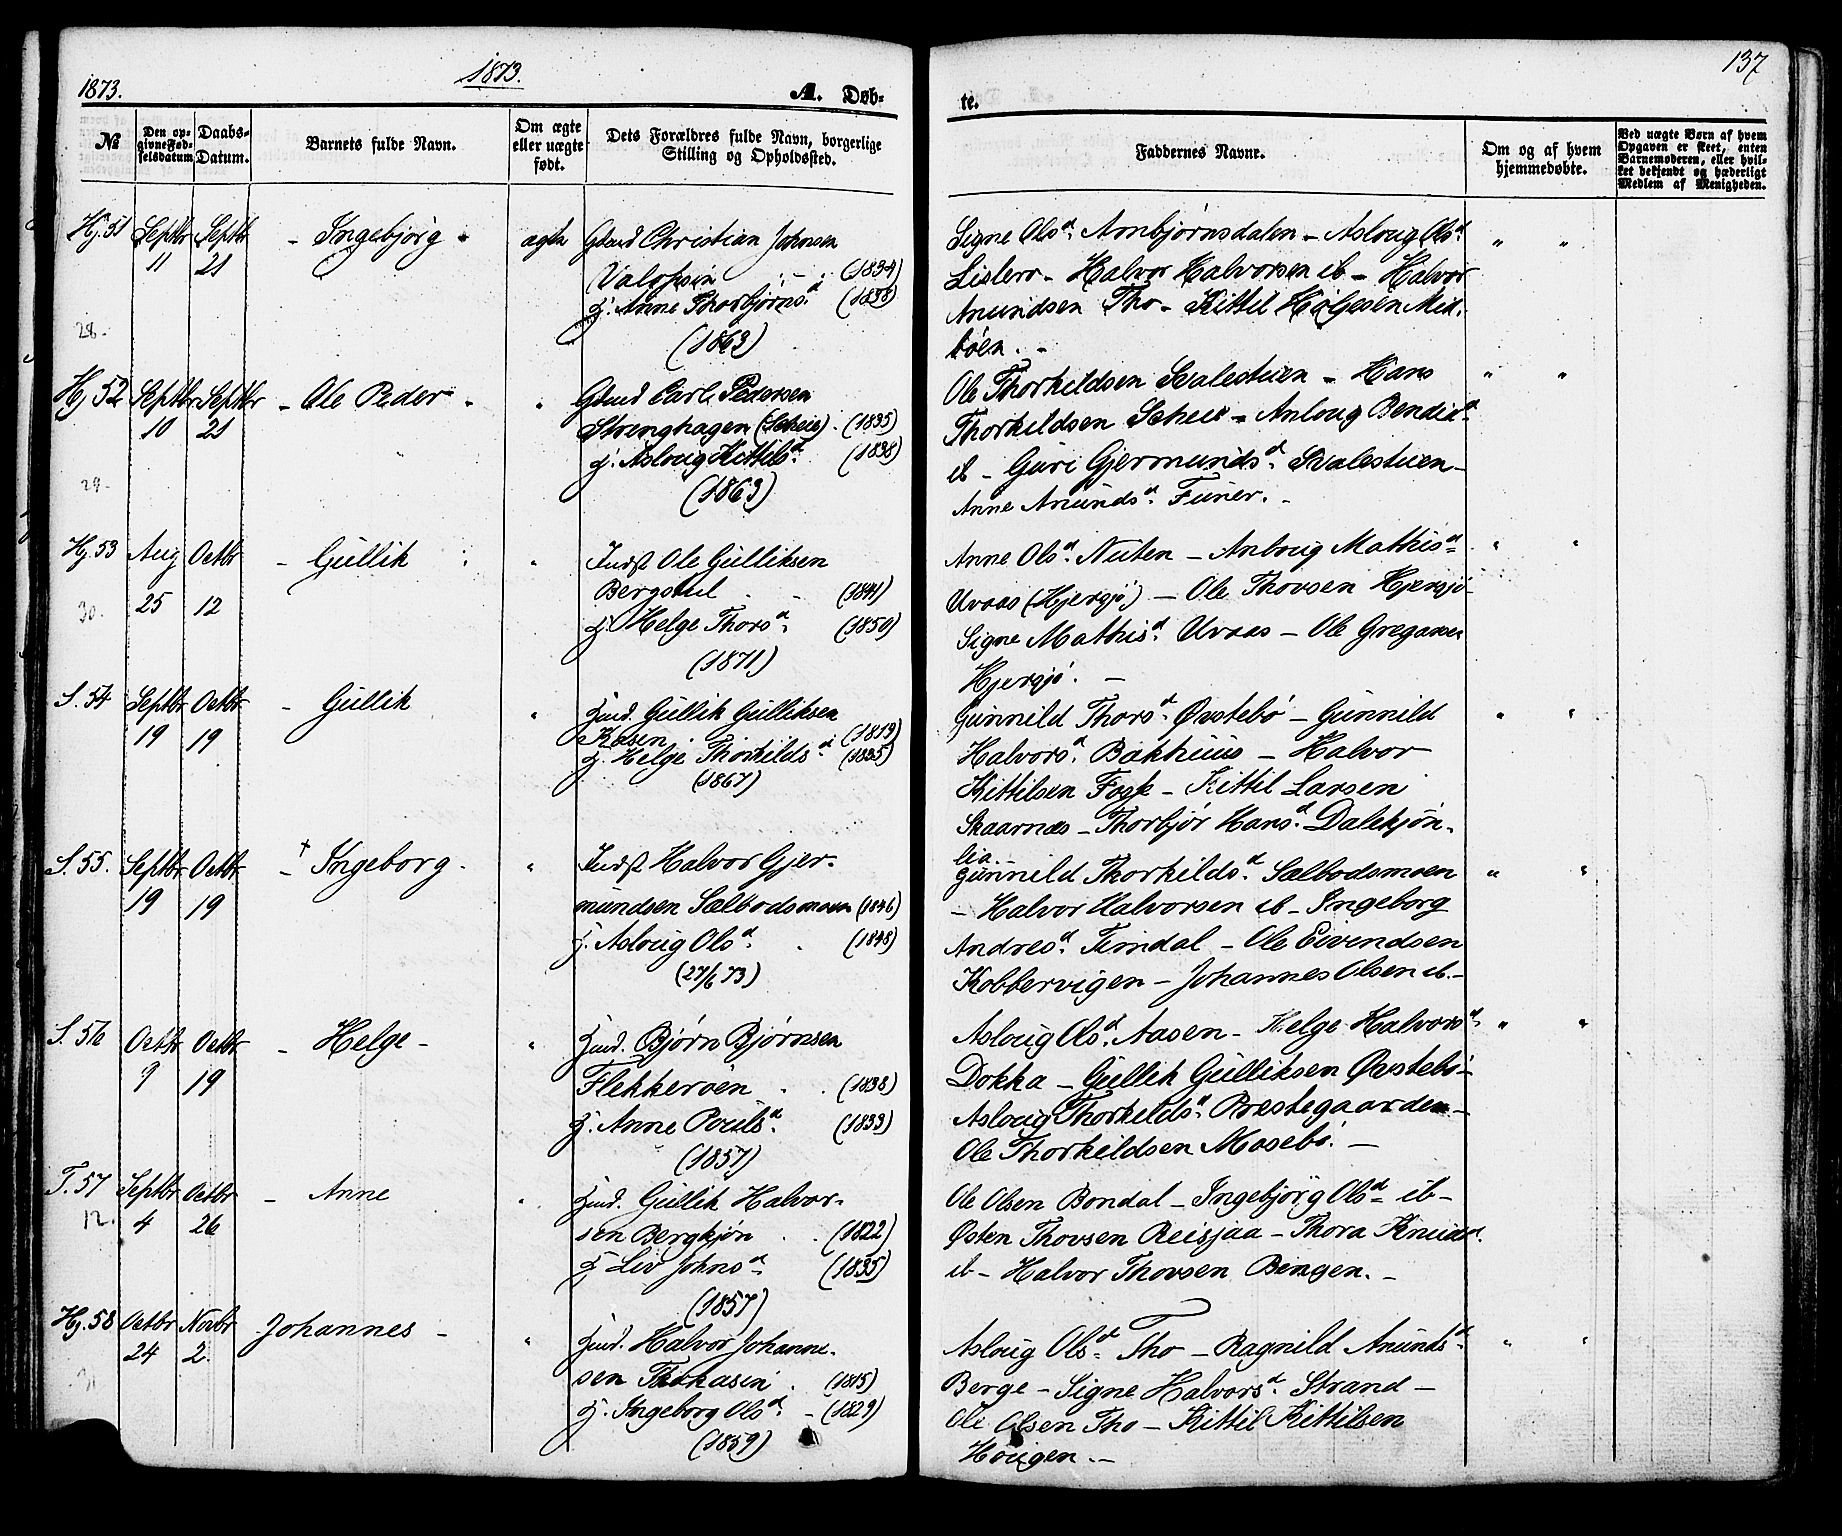 1873.
1873.
A. Døb-
№
Den op-
givne Fød-
selsdatum
Daabs-
Datum.
Barnets fulde Navn.
Om ægte
eller uægte
født.
Dets Forældres fulde Navn, borgerlige
Stilling og Opholdssted.
Hj. 51 Septbr Septbr - Ingebjørg - ægte Gbmd Christian Johnsen
11 21
(1834)
h. Anne Thorbjørnsd. (1838)
28.
(1863)
Hj. 52 Septbr Septbr - Ole Peder - " Gbmd Carl Pedersen
10 21 Strenghagen (Scheie). (1835)
h. Asloug Kittilsd. (1838)
29.
(1863)
Hj. 53 Aug Octbr - Gullik " Indst Ole Gulliksen
25 12 Bergstul (1841)
30.
h. Helge Thorsd. (1850)
(1871)
S. 54 Septbr Octbr - Gullik " Husmd. Gullik Gulliksen
19 19 Kasen. (1819)
h. Helge Thorkildsd. (1835)
(1867)
S. 55. Septbr Octbr - † Ingeborg - " Indst Halvor Gjer-
19 19 mundsen Sælbodsmoen (1846)
h. Asloug Olsd. (1848)
(27/6 73)
S. 56 Octbr Octbr - Helge - " Husmd. Bjørn Bjørnsen
9 19 Flekkerøen (1838)
h. Anne Poulsd. (1833)
(1857)
T. 57 Septbr Octbr - Anne " Husmd. Gullik Halvor-
12. 4 26 sen Bergkjøn (1822)
h. Liv Johnsd. (1835)
(1857)
Hj. 58 Octbr Novbr Johannes - " Husmd. Halvor Johanne-
24 2. sen Thokasin (1815)
31
h. Ingeborg Olsd. - (1829)
(1859)
137
te.
Faddernes Navne.
Om og af hvem
hjemmedøbte.
Ved uægte Børn af hvem
Opgaven er skeet, enten
Barnemoderen, eller hvil-
ket bekjendt og hæderligt
Medlem af Menigheden.
Signe Olsd. Ambjørnsdalen - Asloug Olsd. " "
Lislero - Halvor Halvorsen ib - Halvor
Anundsen Tho - Kittil Helgesen Mid-
bøen. -
Ole Thorkildsen Svalestuen - Hans " "
Thorkildsen Scheie - Anloug Bendixd.
ib - Guri Gjermundsd. Svalestuen -
Anne Anundsd. Funer. -
Anne Olsd. Nuten - Anboug Mathisd. " "
Uvaas (Hjersjø) - Ole Thovsen Hjersjø -
Signe Mathisd. Uvaas - Ole Gregarsen
Hjersjø. -
Gunnild Thorsd. Øvstebø - Gunnild " "
Halvorsd. Bakhuus - Halvor
Kittilsen Fosse - Kittil Larsen
Skaarnæs - Thorbjør Hansd. Dalekjøn-
lia. -
Gunnild Thorkildsd. Sælbodsmoen " "
- Halvor Halvorsen ib - Ingeborg
Andresd. Timdal - Ole Eivendsen
Kobbervigen - Johannes Olsen ib. -
Asloug Olsd. Aasen - Helge Halvorsd. " "
Dokka - Gullik Gulliksen Øvstebø -
Asloug Thorkildsd. Prestegaarden -
Ole Thorkildsen Mosebø. -
Ole Olsen Bondal - Ingebjørg Olsd. ib -
Østen Thovsen Reisjaa - Thora Knudsd.
ib - Halvor Thovsen Bingen. -
Asloug Olsd. Tho - Ragnild Anundsd. " "
Berge - Signe Halvorsd. Strand -
Ole Olsen Tho - Kittil Kittilsen
Hougen. -